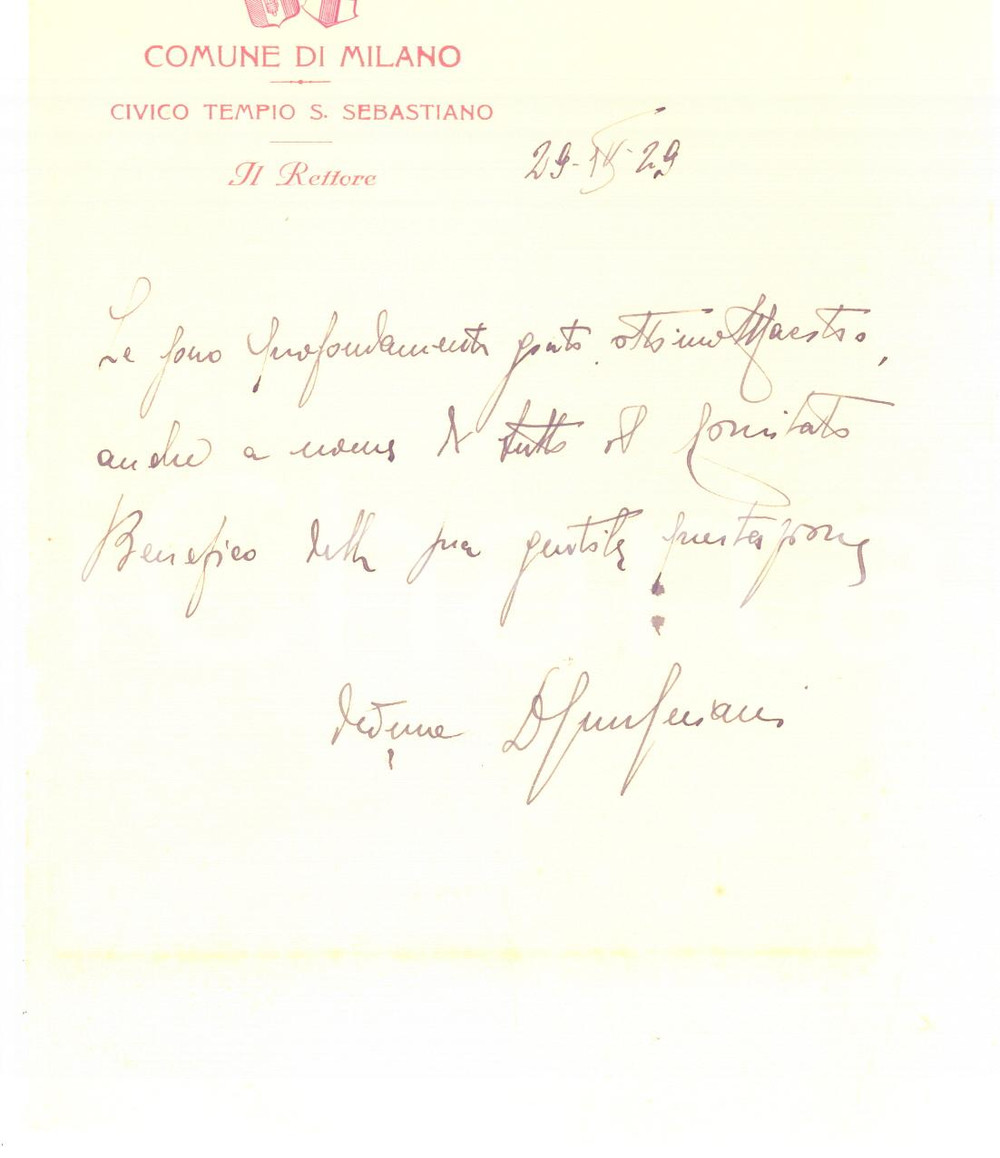 COMUNE DI MILANO
CIVICO TEMPIO S. SEBASTIANO
Il Rettore
29-IV-29
Le sono profondamente grato, ottimo Maestro,
anche a nome di tutto il Comitato
Benefico della sua gentile prestazione